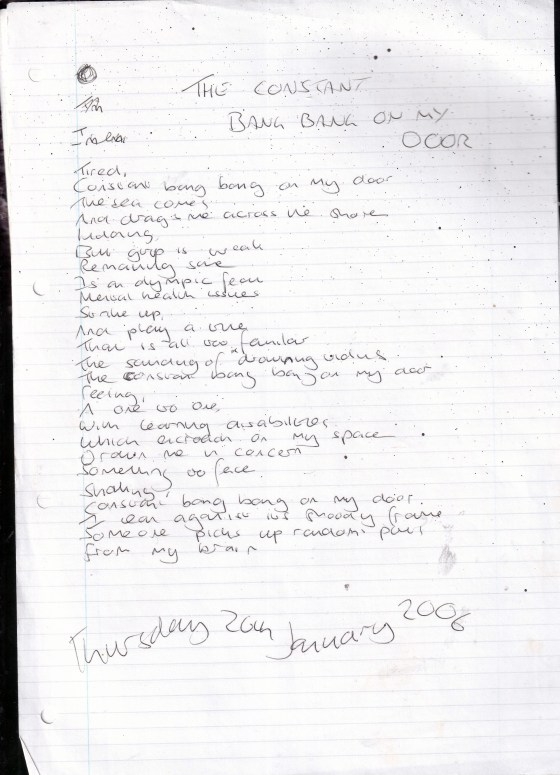 THE CONSTANT
BANG BANG ON MY
DOOR
Tired,
Constant bang bang on my door
The sea comes
And drags me across the shore
Holding,
But grip is weak
Remaining sane
Is an olympic feat
Mental health issues
Strike up,
And play a tune
That is all too familar
The sounding of drowning violins
The constant bang bang on my door
Feeling,
A one to one,
With learning disabilities
Which encroach on my space
Drown me in concern
Something to face
Shaking,
Constant bang bang on my door.
I lean against its frame
Someone picks up random parts
from my brain
Thursday 20th January 2006